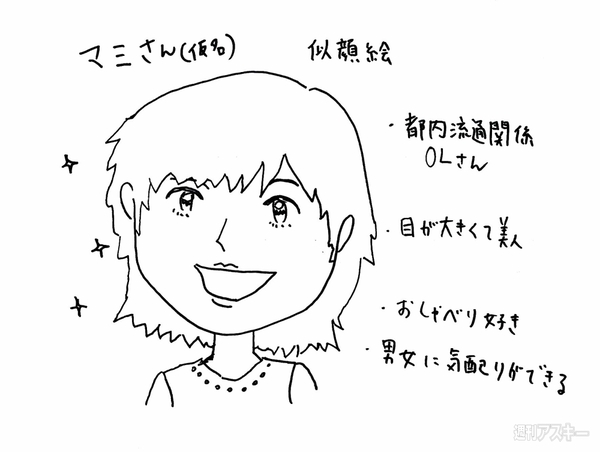 マミさん(仮名)
似顔絵
・都内流通関係
OLさん
・目が大きくて美人
・おしゃべり好き
・男女に気配りができる
週刊アスキー